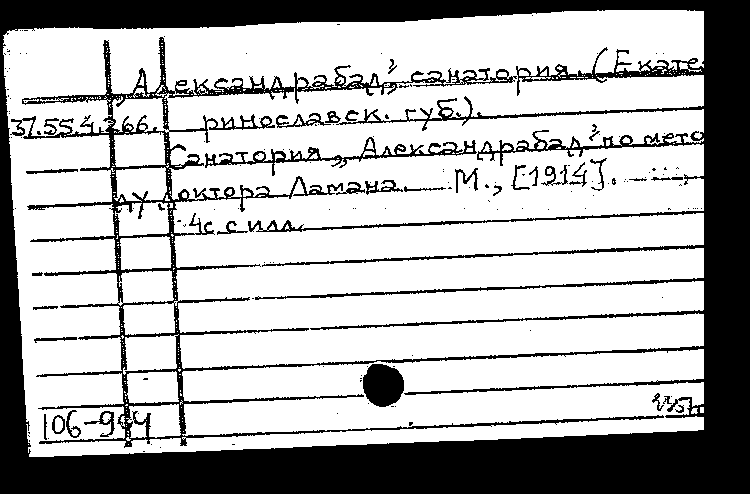 „Александрабад", санатория. (Екате
37.55.4.266. ринославск. губ.).
Санатория „Александрабад" по мето
ду доктора Ламана. М., [1914].
4с. с илл.
106-944